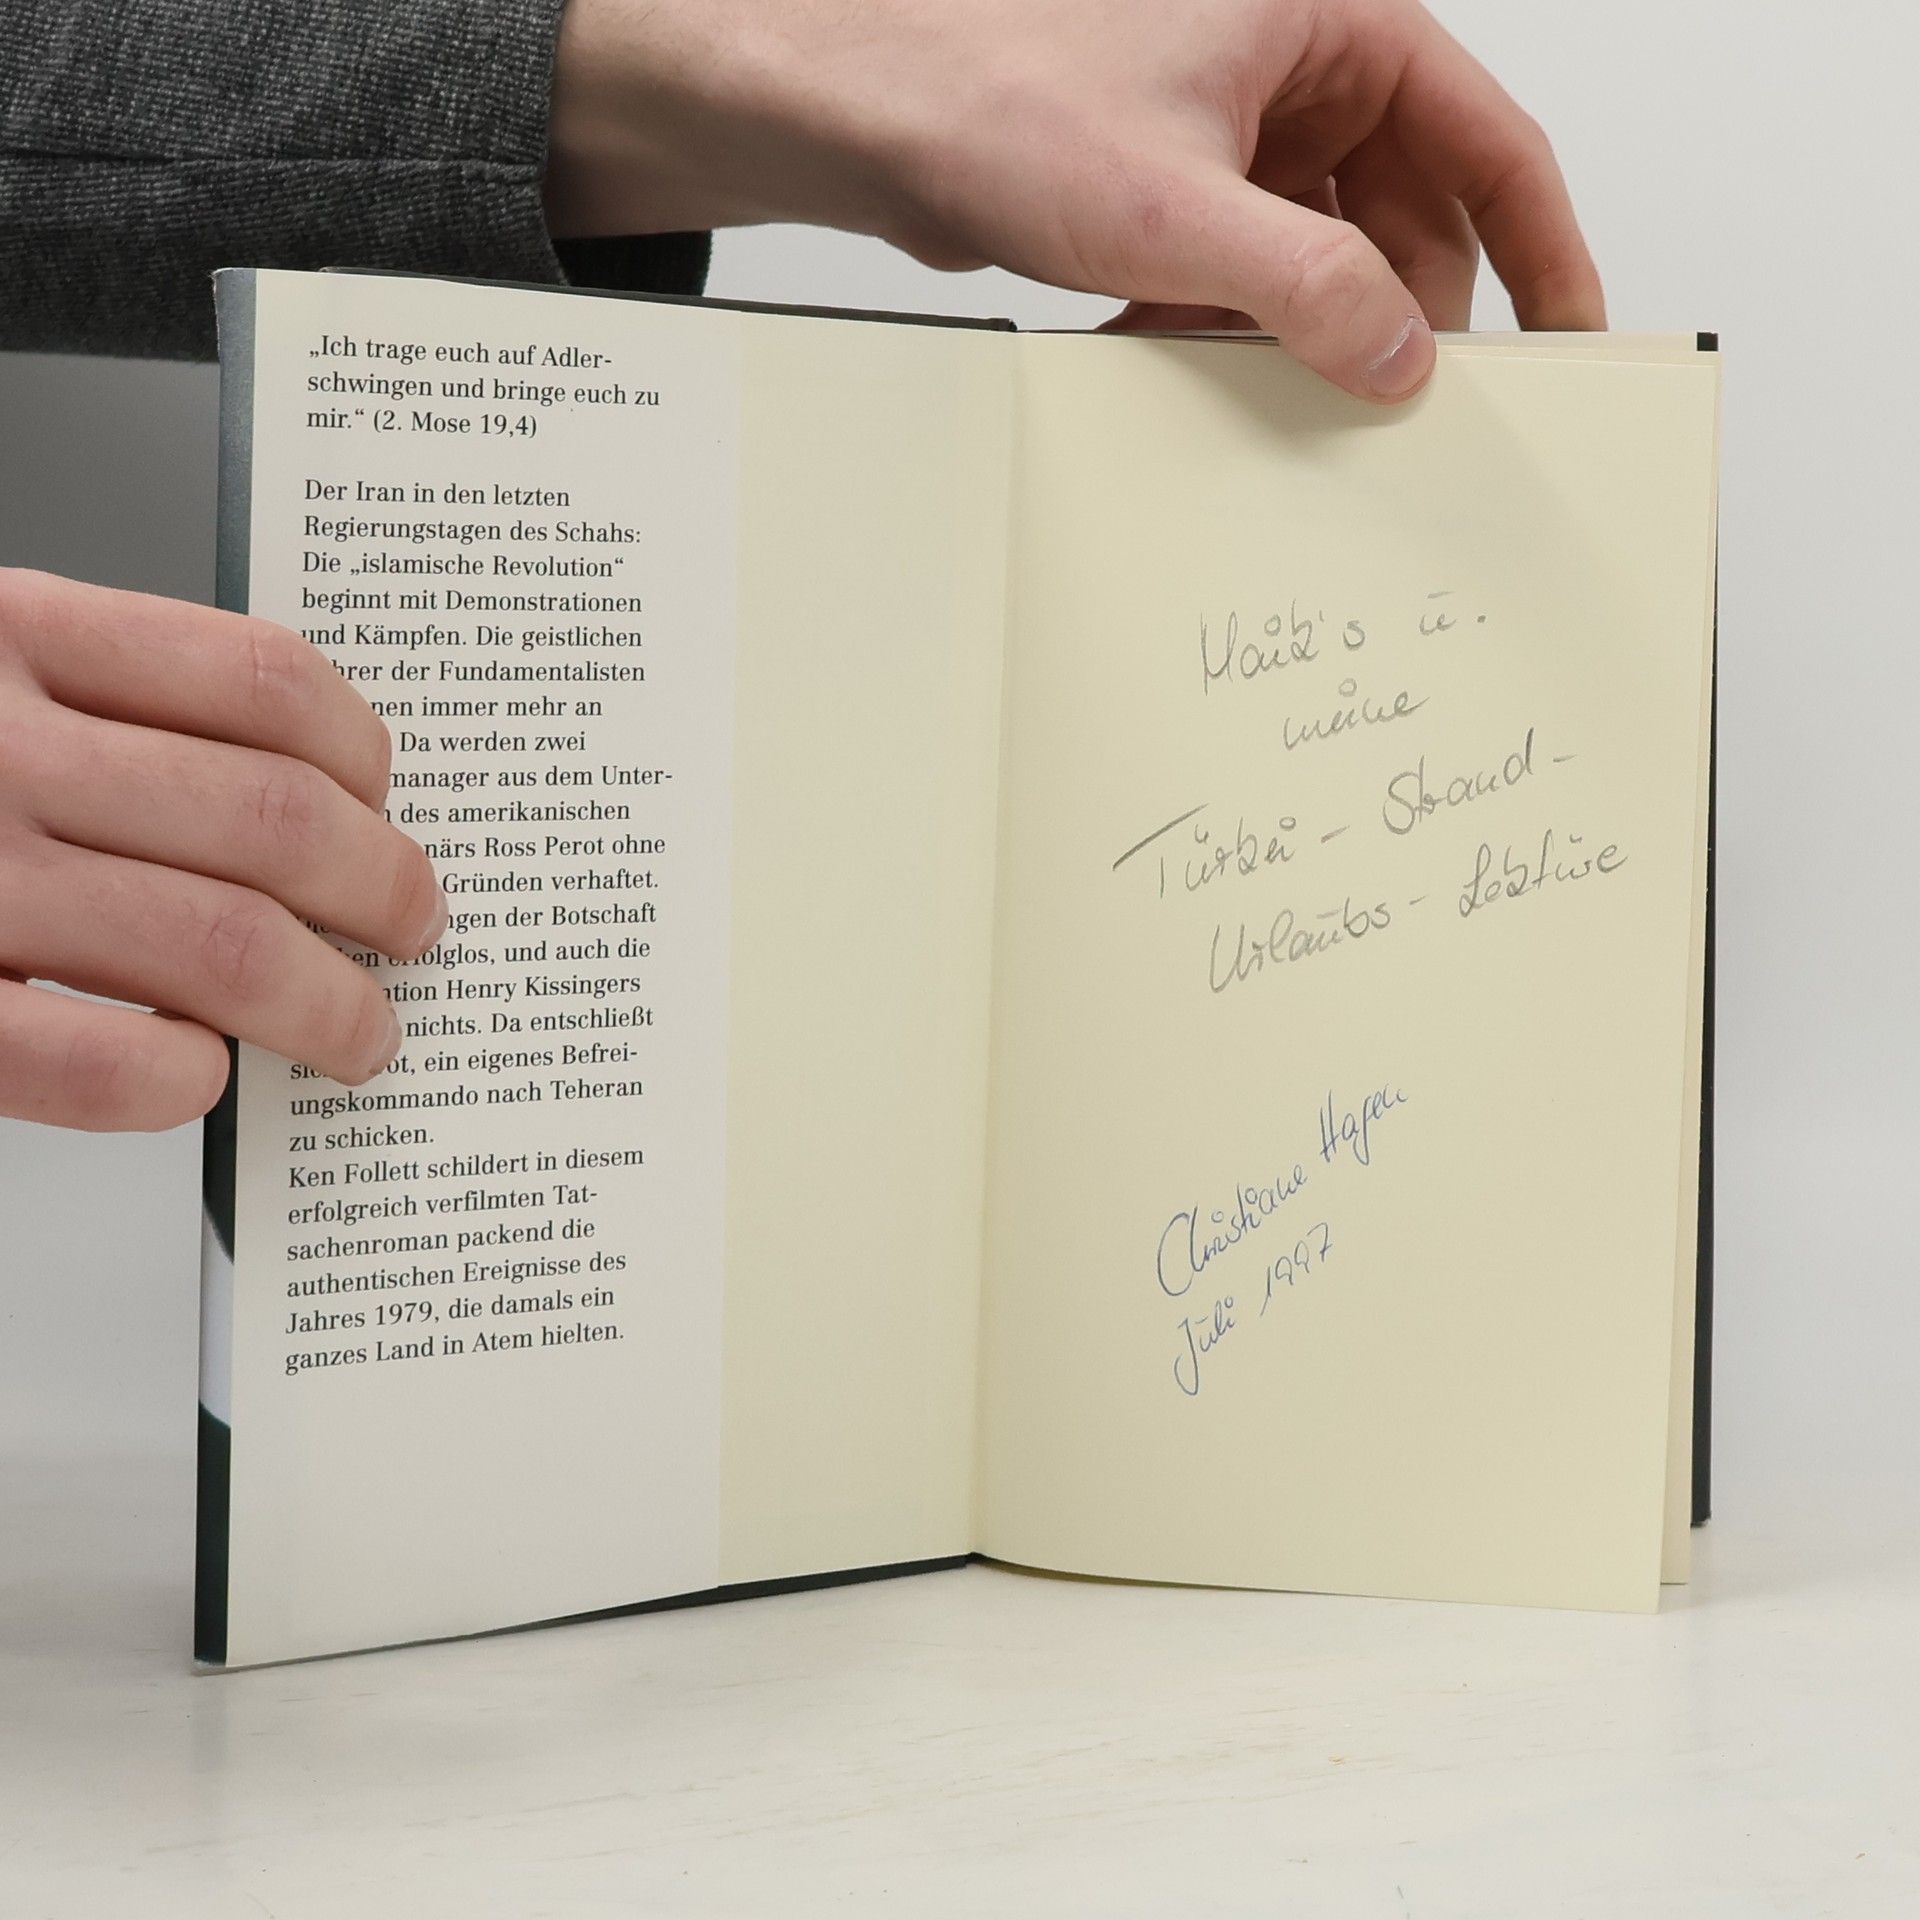 „Ich trage euch auf Adler-
schwingen und bringe euch zu
mir.“ (2. Mose 19,4)
Der Iran in den letzten
Regierungstagen des Schahs:
Die „islamische Revolution“
beginnt mit Demonstrationen
und Kämpfen. Die geistlichen
der Fundamentalisten
immer mehr an
Da werden zwei
manager aus dem Unter-
des amerikanischen
närs Ross Perot ohne
Gründen verhaftet.
ngen der Botschaft
olglos, und auch die
ntion Henry Kissingers
nichts. Da entschließt
ot, ein eigenes Befrei-
ungskommando nach Teheran
zu schicken.
Ken Follett schildert in diesem
erfolgreich verfilmten Tat-
sachenroman packend die
authentischen Ereignisse des
Jahres 1979, die damals ein
ganzes Land in Atem hielten.
u.
meine
Türkei - Strand -
Urlaubs - Lektüre
Christiane Hagen
Juli 1997